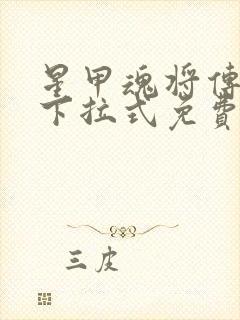 星甲魂将傳
下拉式免費
三皮